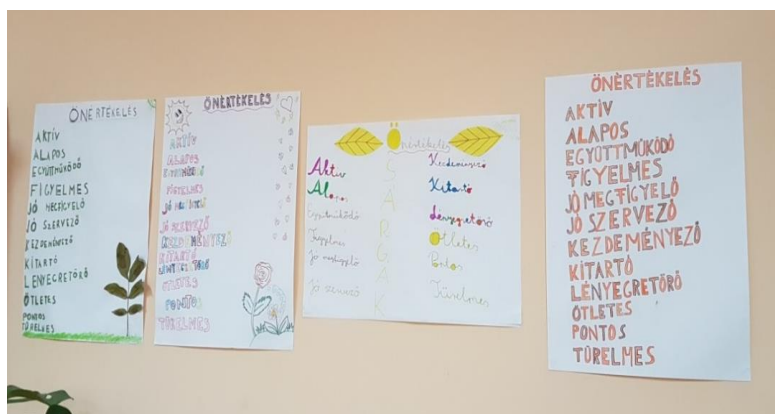 ÖNÉRTEKELÉS
AKTÍV
ALAPOS
EGYÜTTMŰKÖDŐ
FIGYELMES
JÓ MEGFIGYELŐ
JÓ SZERVEZŐ
KEZDEMÉNYEZŐ
KITARTÓ
LÉNYEGRETÖRŐ
ÖTLETES
PONTOS
TÜRELMES
ÖNÈRTÉKELÉS
AKTÍV
ALAPOS
EGYÜTTMŰKÖDŐ
FIGYELMES
JÓ MEGFIGYELŐ
JÓ SZERVEZŐ
KEZDEMÉNYEZŐ
KITARTÓ
LÉNYEGRETÖRŐ
ÖTLETES
PONTOS
TÜRELMES
Önértékelés
SÁRGÁK
Aktív
Alapos
Együttműködő
Figyelmes
Jó megfigyelő
Jó szervező
Kezdeményező
Kitartó
Lényegretörő
Ötletes
Türelmes
ÖNÈRTÉKELÉS
AKTÍV
ALAPOS
EGYÜTTMŰKÖDŐ
FIGYELMES
JÓ MEGFIGYELŐ
JÓ SZERVEZŐ
KEZDEMÉNYEZŐ
KÍTARTÓ
LÉNYEGRETÖRŐ
ÖTLETES
PONTOS
TÜRELMES